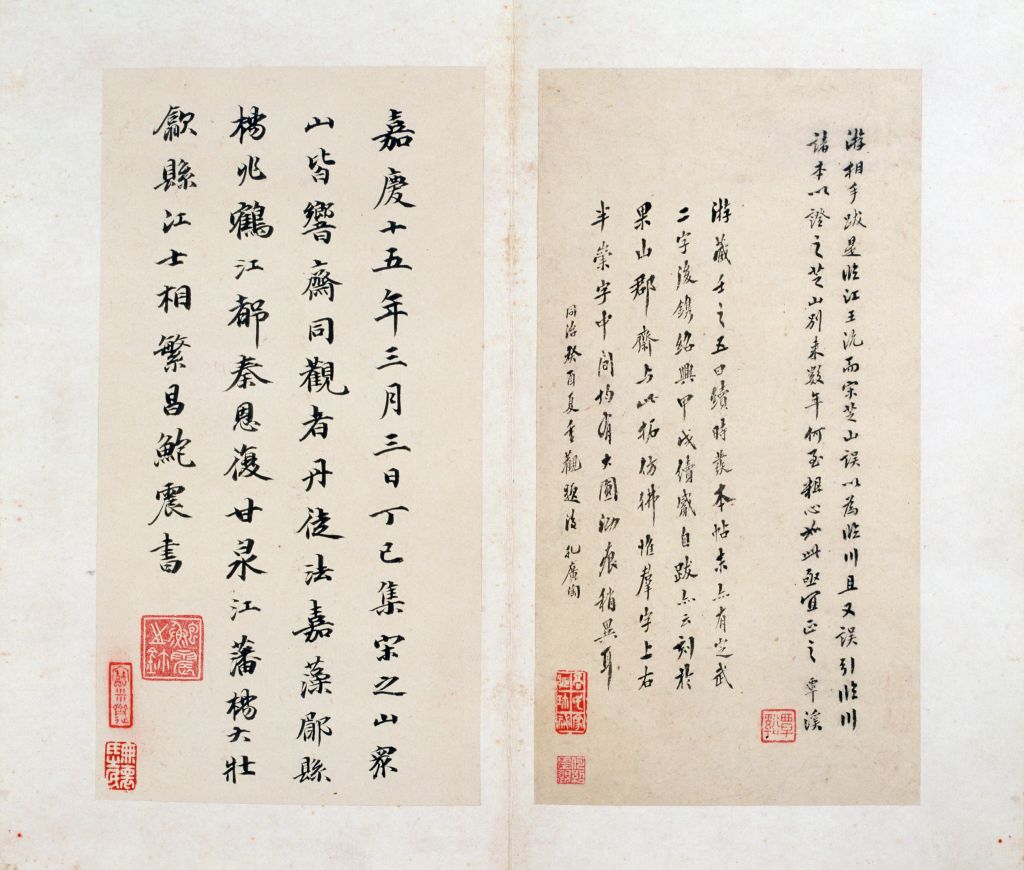 游相手跋是臨江王沇而宋芝山誤以爲臨川且又誤引臨川
諸本以證之芝山別來數年何至粗心如此亟宜正之覃溪
游藏壬之五曰續時發本帖末亦有定武
二字後鐫紹興甲戌續歲自跋亦云刻於
果山郡齋与此拓彷彿惟羣字上右
半崇字中間均有大圓泐痕稍異耳
同治癸酉夏重觀題後孔廣陶
嘉慶十五年三月三日丁巳集宋之山眾
山皆響齋同觀者丹徒法嘉蓀鄖縣
楊兆鶴江都秦恩復甘泉江藩楊大壯
歙縣江士相繁昌鮑震書
覃谿